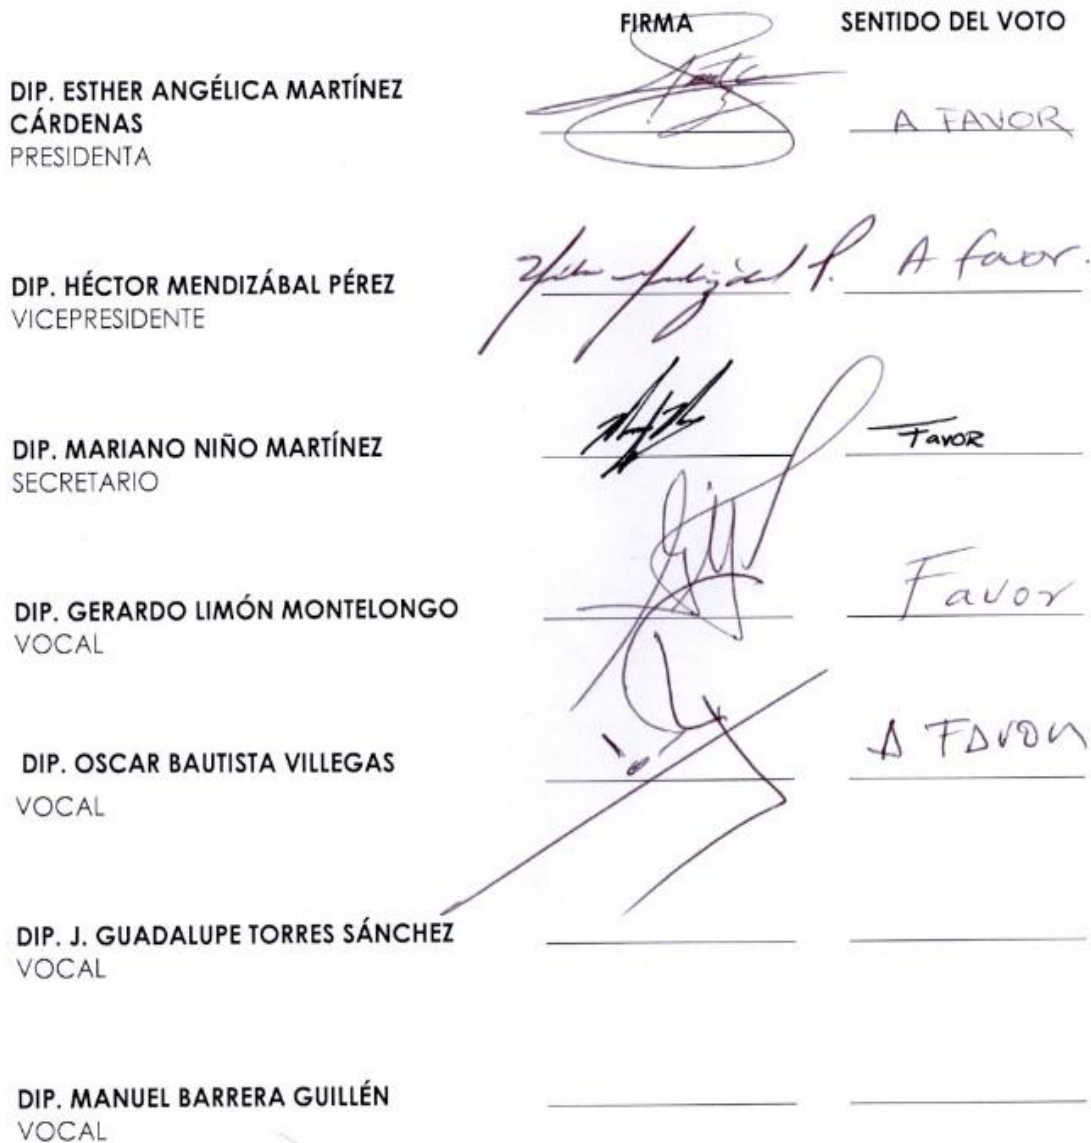 FIRMA SENTIDO DEL VOTO
DIP. ESTHER ANGÉLICA MARTÍNEZ
CÁRDENAS
PRESIDENTA
A FAVOR
DIP. HÉCTOR MENDIZÁBAL PÉREZ
VICEPRESIDENTE
A favor.
DIP. MARIANO NIÑO MARTÍNEZ
SECRETARIO
Favor
DIP. GERARDO LIMÓN MONTELONGO
VOCAL
Favor
DIP. OSCAR BAUTISTA VILLEGAS
VOCAL
A FAVOR
DIP. J. GUADALUPE TORRES SÁNCHEZ
VOCAL
DIP. MANUEL BARRERA GUILLÉN
VOCAL